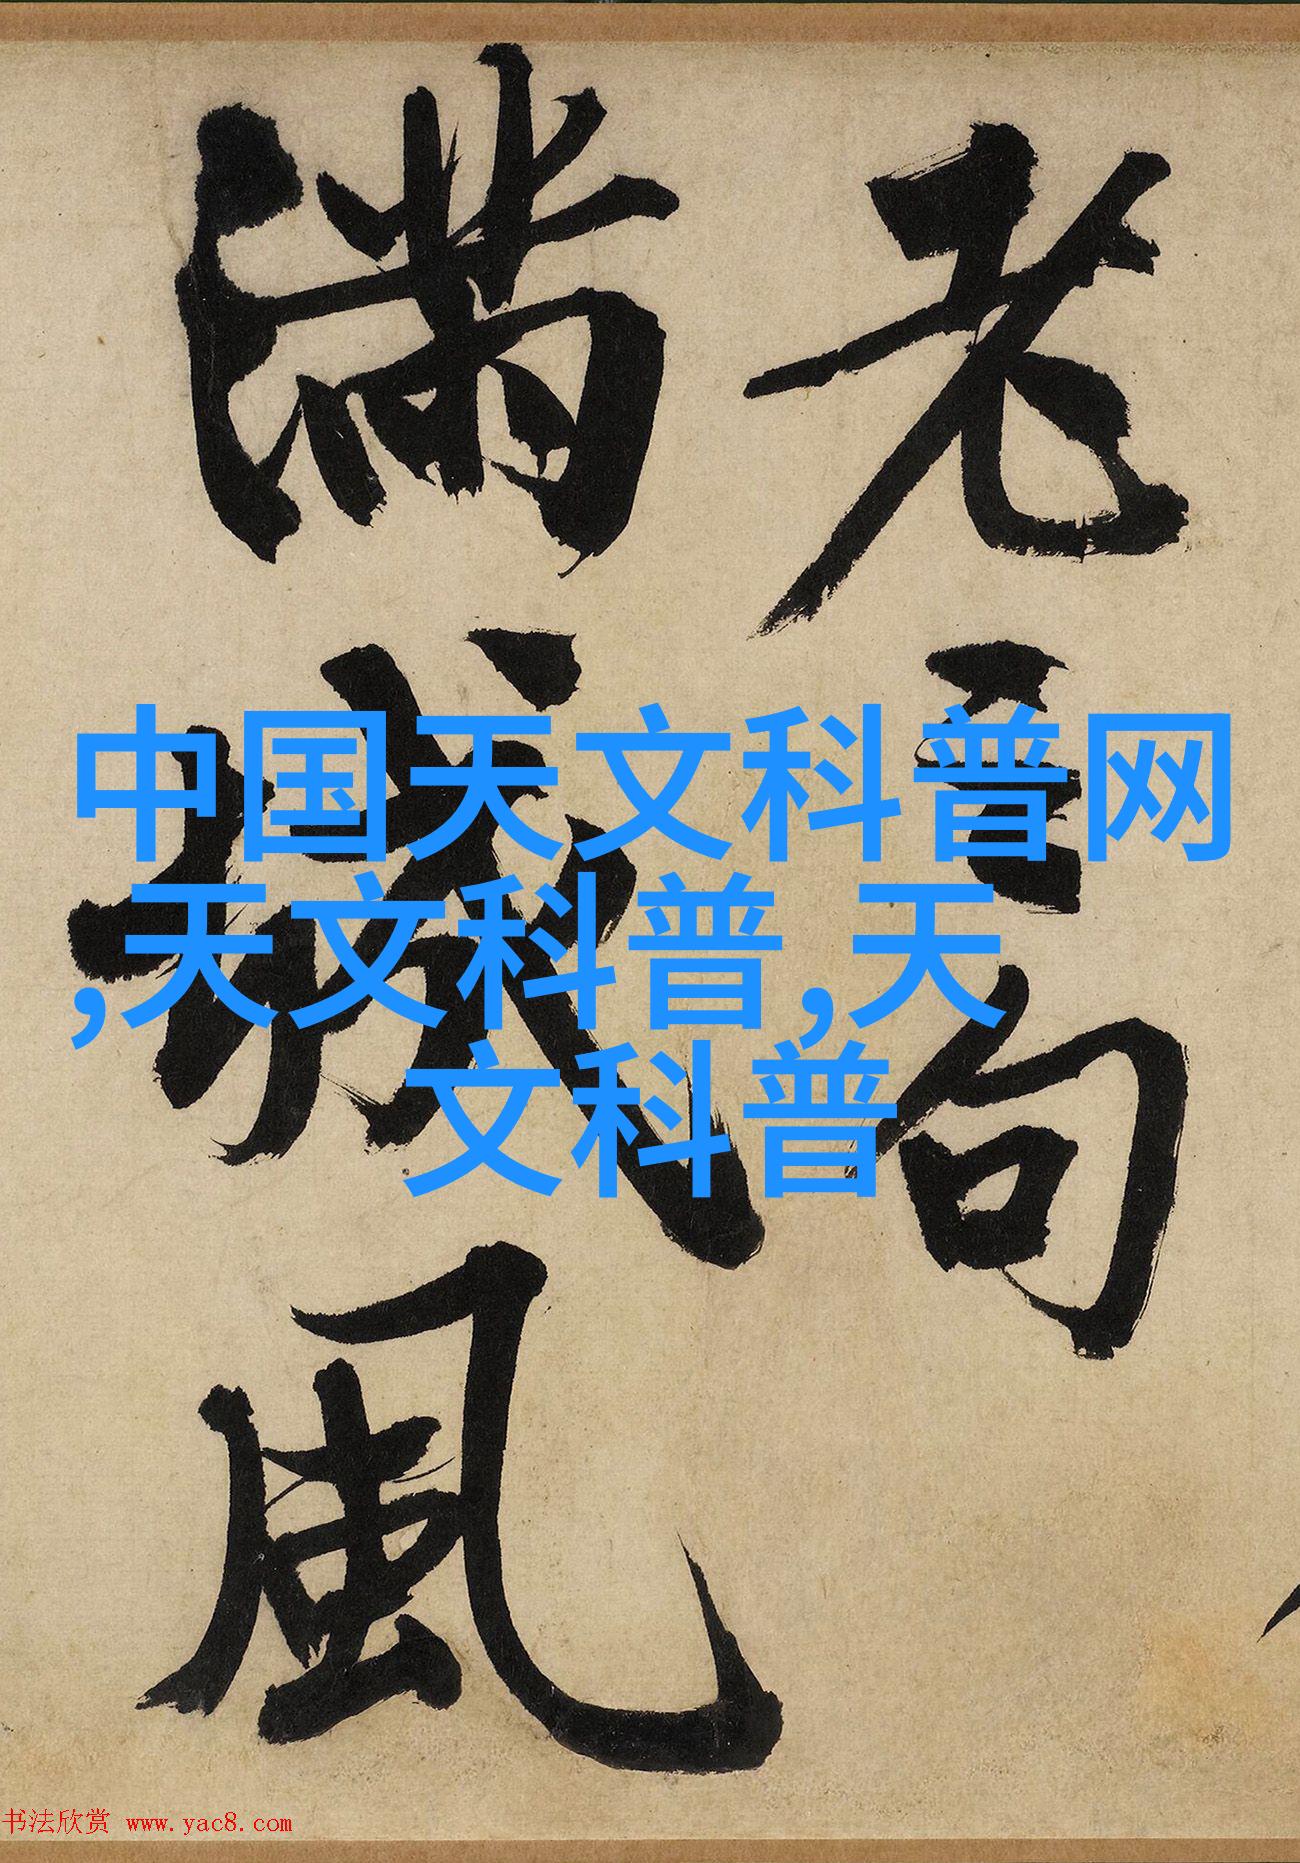 老吾句
满城風
中国天文科普网
,天文科普,天
文科普
书法欣赏 www.yac8.com